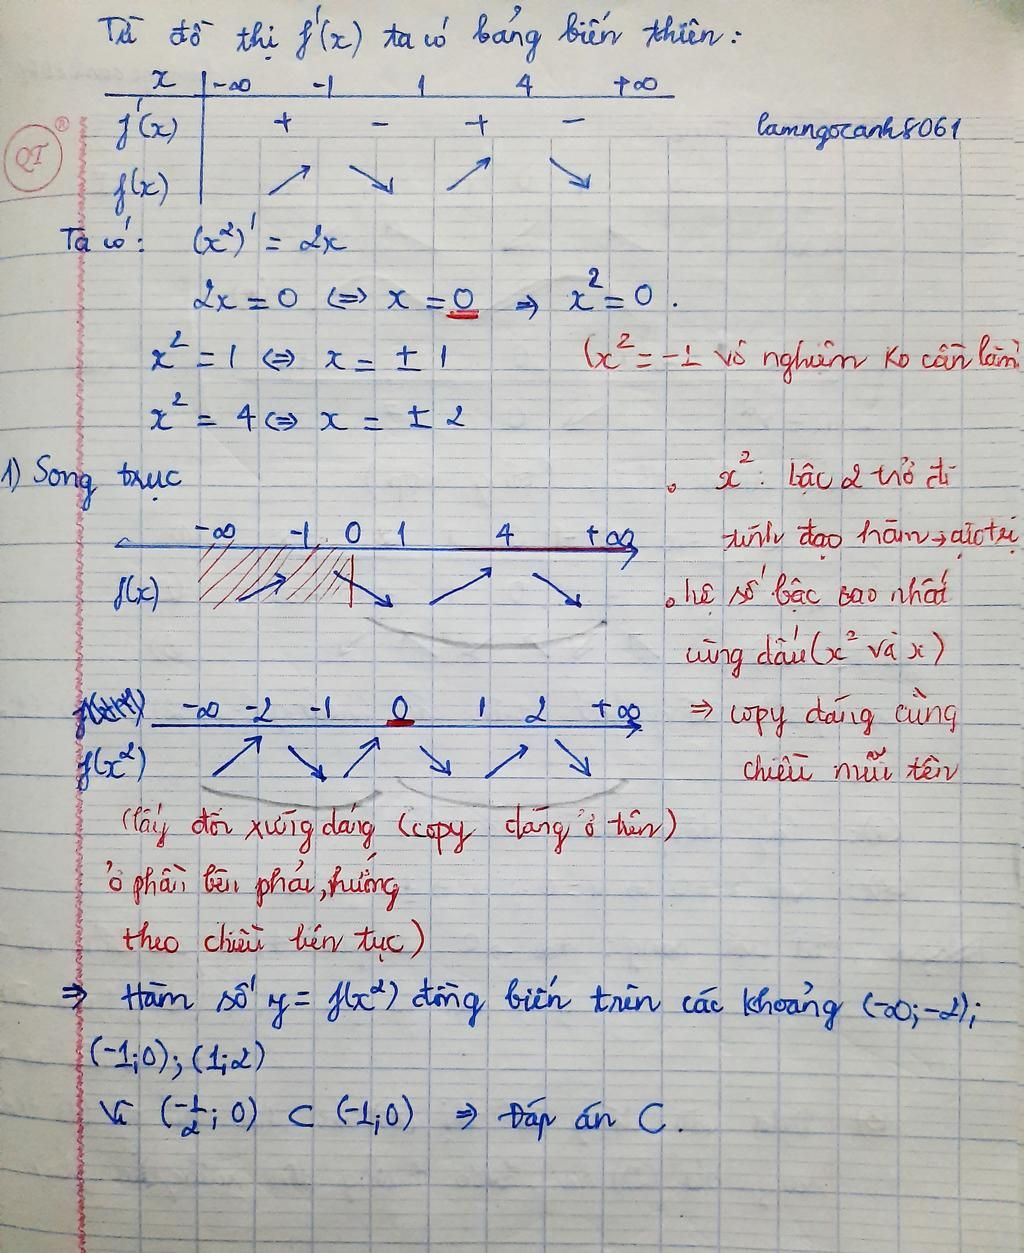 Từ đồ thị f'(x) ta có bảng biến thiên:
x -∞ -1 1 4 +∞
f'(x) + - + -
lamngocanh8061
QT ®
f(x) ↗ ↘ ↗ ↘
Ta có: (x²)' = 2x
2x = 0 ⇔ x = 0 ⇒ x² = 0.
x² = 1 ⇔ x = ± 1
(x² = -1 vô nghiệm ko cần làm)
x² = 4 ⇔ x = ± 2
1) Song trục
• x²: bậc 2 trở đi
-∞ -1 0 1 4 +∞
tính đạo hàm → cực trị
f(x) ↗ ↘ ↗ ↘
• hệ số bậc cao nhất
cùng dấu (x² và x)
-∞ -2 -1 0 1 2 +∞
⇒ copy dáng cùng
f(x²) ↗ ↘ ↗ ↘ ↗ ↘
chiều mũi tên
(lấy đối xứng dáng (copy dáng ở trên)
ở phần bên phải, hướng
theo chiều liên tục)
⇒ Hàm số y = f(x²) đồng biến trên các khoảng (-∞;-2);
(-1;0); (1;2)
Vì (-1/2; 0) ⊂ (-1;0) ⇒ Đáp án C.